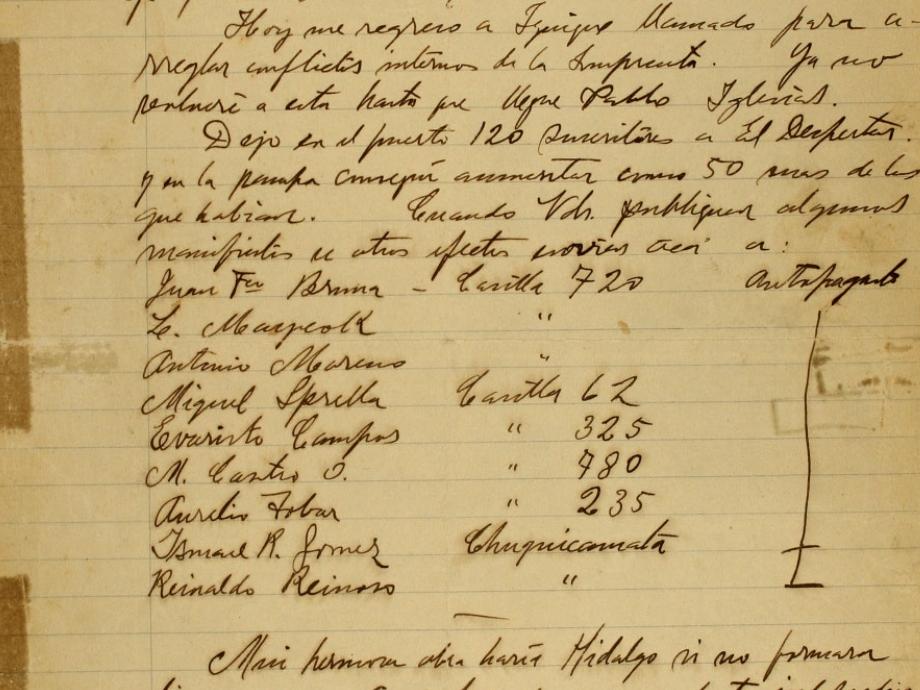 Hoy me regreso a Iquique llamado para a-
rreglar conflictos internos de la Imprenta. Ya no
volveré a esta hasta que llegue Pablo Iglesias.
Dejo en el puerto 120 suscritores a El Despertar.
y en la pampa conseguí aumentar como 50 mas de los
que habian. Cuando Vds. publiquen algunos
manifiestos u otros efectos envien acá a:
Juan Fco Bruna - Casilla 720 Antofagasta
L. "
Antonio Moreno "
Miguel Casilla 62
Evaristo Campos " 325
M. Castro O. " 780
Aurelio Tobar " 235
Ismael R. Gomez Chuquicamata
Reinaldo Reinoso "
Mui hermosa obra haria Hidalgo si no formara